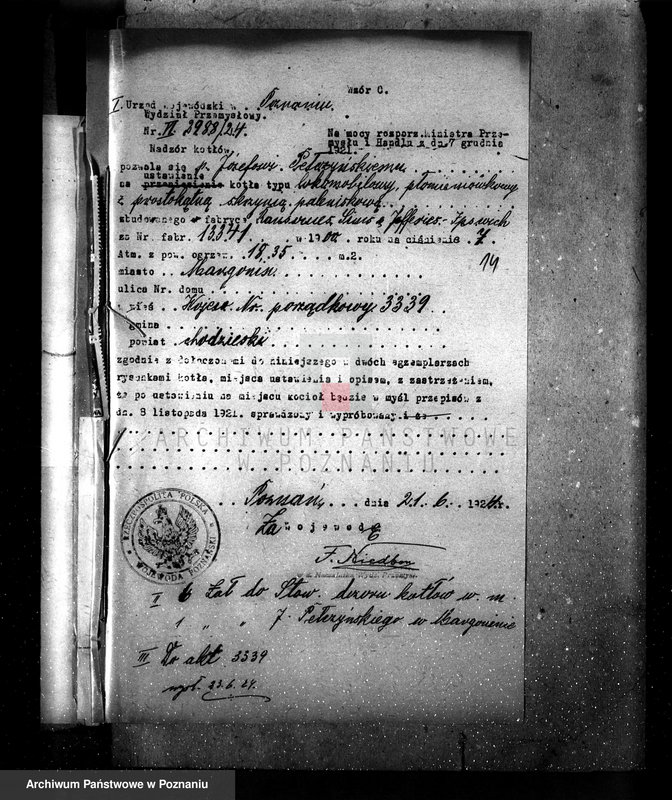 Wzór C.
I. Urząd Wojewódzki w . Poznaniu.
Wydział Przemysłowy.
Nr. VI 2988/24.
Na mocy rozporz. Ministra Prze-
mysłu i Handlu z dn. 7 grudnia
1921.
Nadzór kotłów.
pozwala się p. Józefowi Pełczyńskiemu
ustawienie
na przeniesienie kotła typu lokomobilowy, płomieniówkowy
z prostokątną skrzynią paleniskową
zbudowanego w fabryce Ransomes Sims & Jefferies - Ipswich
za Nr. fabr. 13341 . . w 1900 . roku na ciśnienie . 7.
Atm. z pow. ogrzew. 18,35 . . m.2.
14
miasto . . Margonin
ulica Nr. domu
wieś . . Nr. porządkowy 3339
gmina
powiat chodzieski
zgodnie z dołączonemi do niniejszego w dwóch egzemplarzach
rysunkami kotła, miejsca ustawienia i opisem, z zastrzeżeniem,
że po ustawieniu na miejscu kocioł będzie w myśl przepisów z
dn. 8 listopada 1921. sprawdzony i wypróbowany i ze
ARCHIWUM PAŃSTWOWE
W POZNANIU
. . Poznań, . . . dnia 21. 6. 1924.r.
Za Wojewodę
RZECZPOSPOLITA POLSKA
WOJEWODA POZNAŃSKI
w z. Naczelnika Wydz. Przemysł.
II 6 Zał do Stow. dozoru kotłów w. m.
1 " " J. Pełczyńskiego w Margoninie
III Do akt 3339
23.6.24.
Archiwum Państwowe w Poznaniu